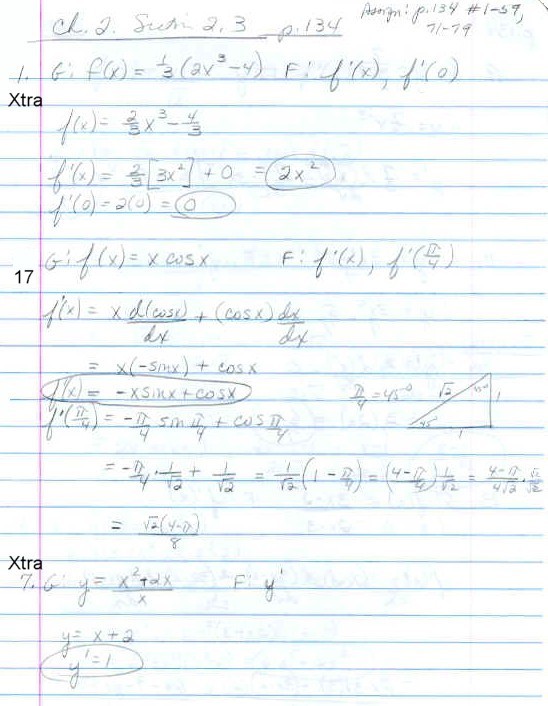 Ch. 2. Section 2.3 p.134
Assign: p.134 #1-59,
71-79
1. G: f(x) = 1/3 (2x³-4) F: f'(x), f'(0)
Xtra
f(x) = 2/3 x³ - 4/3
f'(x) = 2/3 [3x²] + 0 = 2x²
f'(0) = 2(0) = 0
G: f(x) = x cosx F: f'(x), f'(π/4)
17
f'(x) = x d(cosx)/dx + (cosx) dx/dx
= x(-sinx) + cosx
f'(x) = -xsinx + cosx
π/4 = 45° √2 45° 1
f'(π/4) = -π/4 sin π/4 + cos π/4
45° 1
= -π/4 · 1/√2 + 1/√2 = 1/√2 (1 - π/4) = (4-π/4) 1/√2 = 4-π/4√2 · √2/√2
= √2(4-π)/8
Xtra
7. G: y = x²+2x/x F: y'
y = x + 2
y' = 1